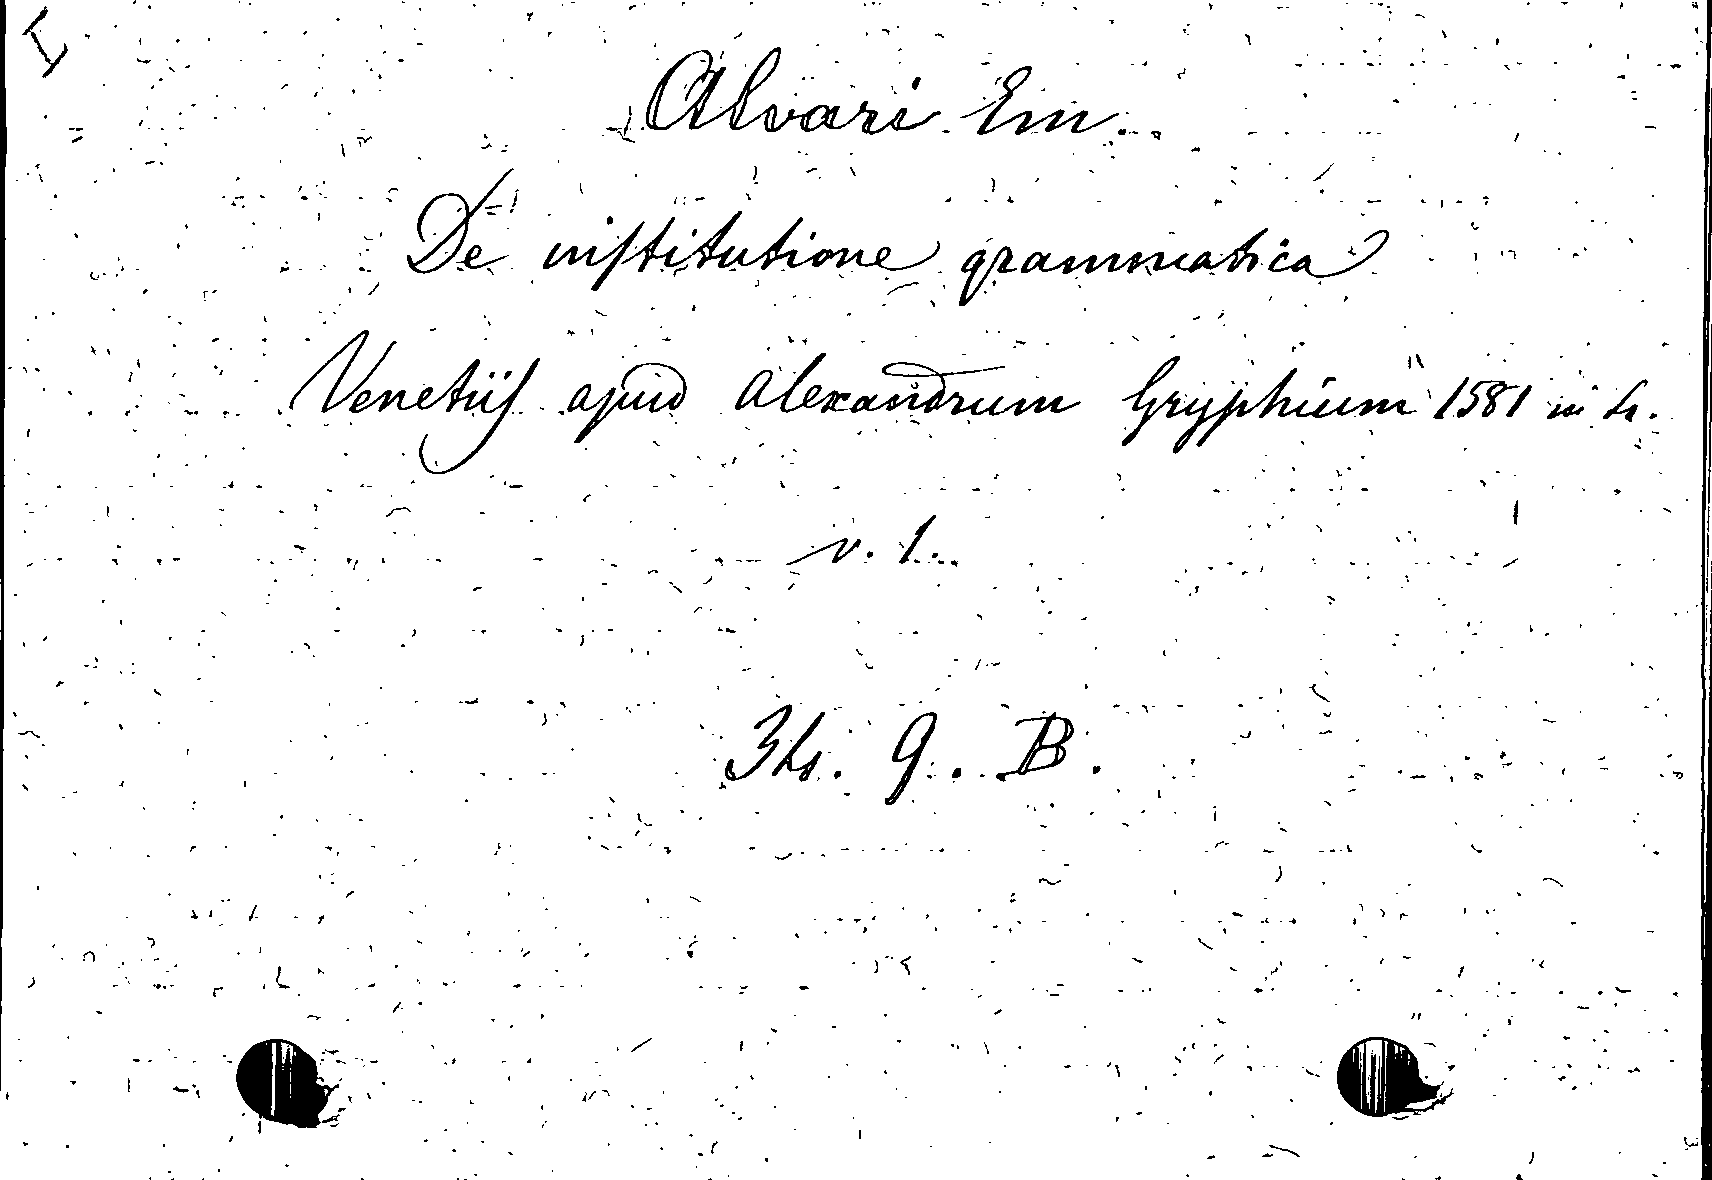 Alvari Em.
De inſtitutione grammatica
Venetiiſ apud Alexandrum Gryphium 1581 in
v. 1.
G. B.